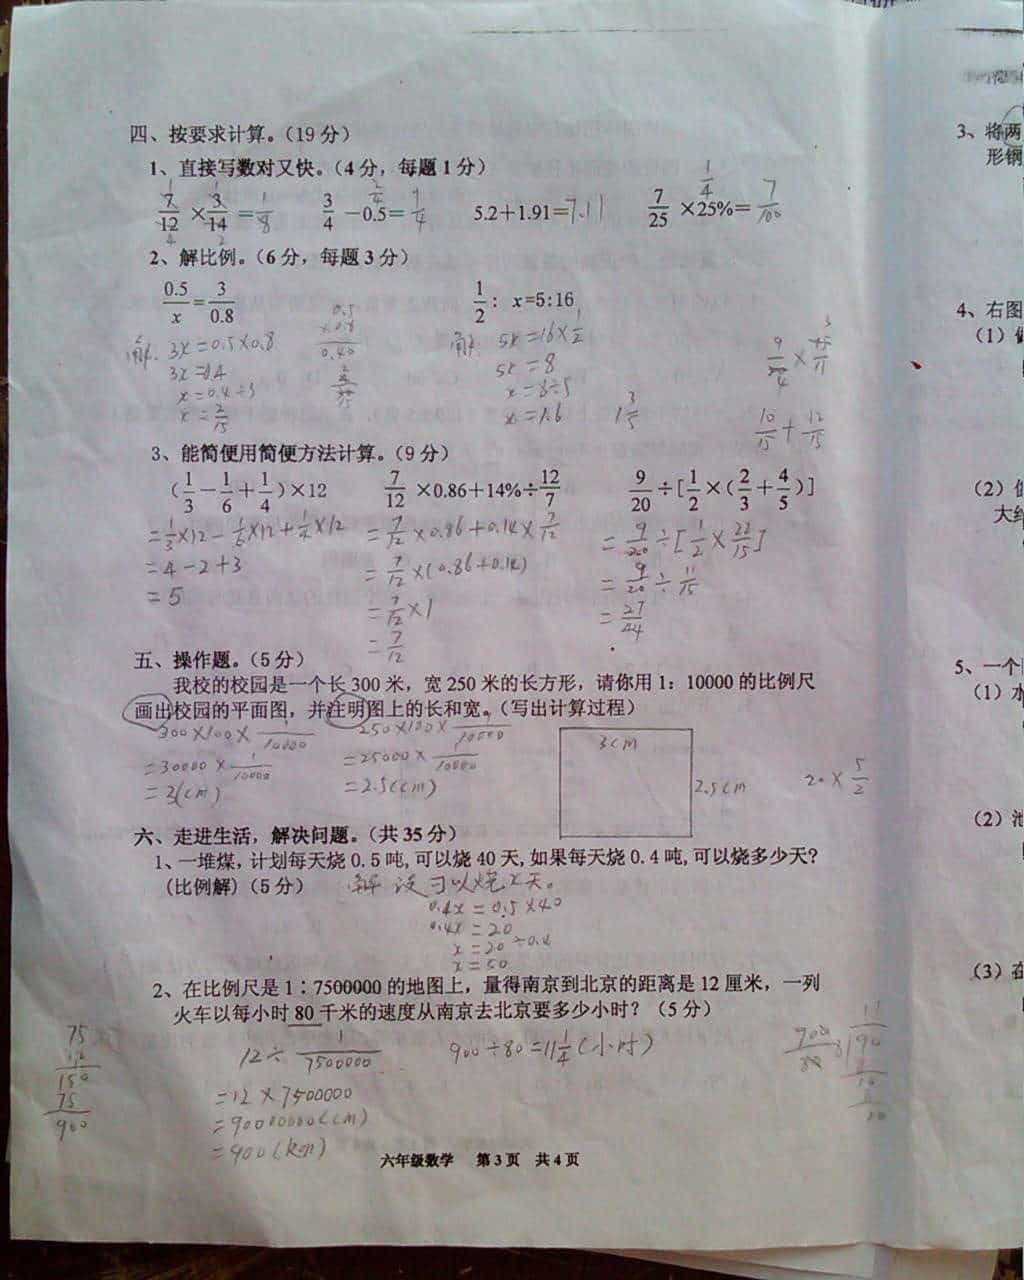 四、按要求计算。（19分）
1、直接写数对又快。（4分，每题1分）
7/12 × 3/14 = 1/8   3/4 －0.5= 1/4   5.2＋1.91=7.11   7/25 ×25%= 7/100
2、解比例。（6分，每题3分）
0.5/x = 3/0.8   1/2：x=5:16
解：3x=0.5×0.8   解：5x=16×1/2
3x=0.4   5x=8
x=0.4÷3   x=8÷5
x=2/15   x=1.6
9/20 × 15/11
10/15 + 12/15
3、能简便用简便方法计算。（9分）
(1/3 － 1/6 ＋ 1/4)×12   7/12 ×0.86＋14%÷12/7   9/20 ÷[1/2 ×(2/3 ＋ 4/5)]
=1/3×12－1/6×12+1/4×12   =7/12×0.86+0.14×7/12   =9/20÷[1/2×22/15]
=4-2+3   =7/12×(0.86+0.14)   =9/20÷11/15
=5   =7/12×1   =27/44
=7/12
五、操作题。（5分）
我校的校园是一个长300米，宽250米的长方形，请你用1：10000的比例尺
画出校园的平面图，并注明图上的长和宽。（写出计算过程）
300×100×1/10000   250×100×1/10000
=30000×1/10000   =25000×1/10000
=3(cm)   =2.5(cm)
3cm
2.5cm
20×5/2
六、走进生活，解决问题。（共35分）
1、一堆煤，计划每天烧0.5吨，可以烧40天，如果每天烧0.4吨，可以烧多少天？
（比例解）（5分）   解 设可以烧x天。
0.4x=0.5×40
0.4x=20
x=20÷0.4
x=50
2、在比例尺是1：7500000的地图上，量得南京到北京的距离是12厘米，一列
火车以每小时80千米的速度从南京去北京要多少小时？（5分）
12÷1/7500000   900÷80=11 1/4(小时)
=12×7500000
=90000000(cm)
=900(km)
75
12
150
75
900
六年级数学   第3页   共4页
3、将两
形钢
4、右图
（1）
（2）
大约
5、一个
（1）水
（2）池
（3）在